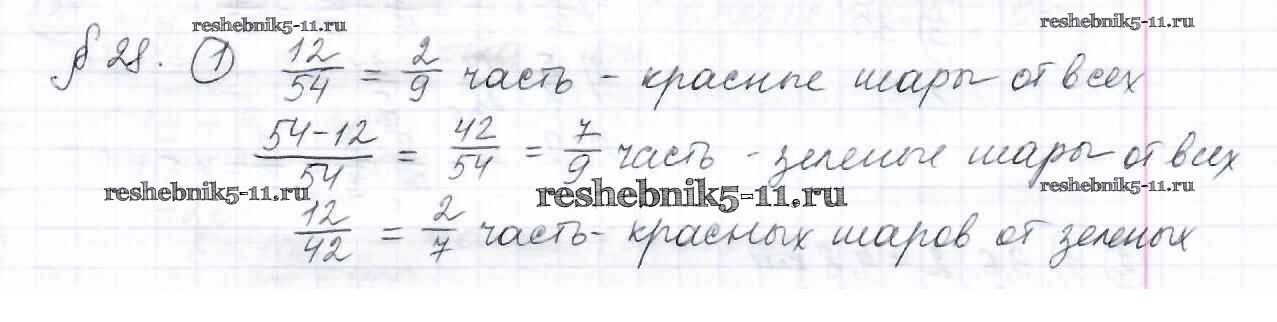 reshebnik5-11.ru
reshebnik5-11.ru
§ 28. ① 12/54 = 2/9 часть - красные шары от всех
(54-12)/54 = 42/54 = 7/9 часть - зеленые шары от всех
reshebnik5-11.ru
reshebnik5-11.ru
reshebnik5-11.ru
12/42 = 2/7 часть - красных шаров от зеленых